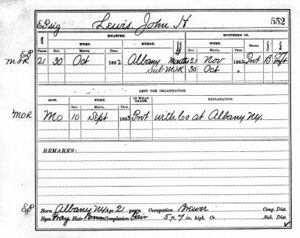 Lewis, John H 552
ENLISTED. MUSTERED IN.
WHEN. WHERE. WHEN.
21 30 Oct 1862 Albany 21 Nov 1862 Pvt B
MOR Sub MSR 30 Oct
LEFT THE ORGANIZATION.
HOW. WHEN. IN WHAT GRADE. EXPLANATION.
MOR Mo 10 Sept 1863 Pvt with Co at Albany Ny.
REMARKS:
Born Albany Ny Age 21 years, Occupation Brewer Cong. Dist.
Eyes Gray Hair Brown Complexion Fair 5 ft. 7 in. high, Co. Sub. Dist.